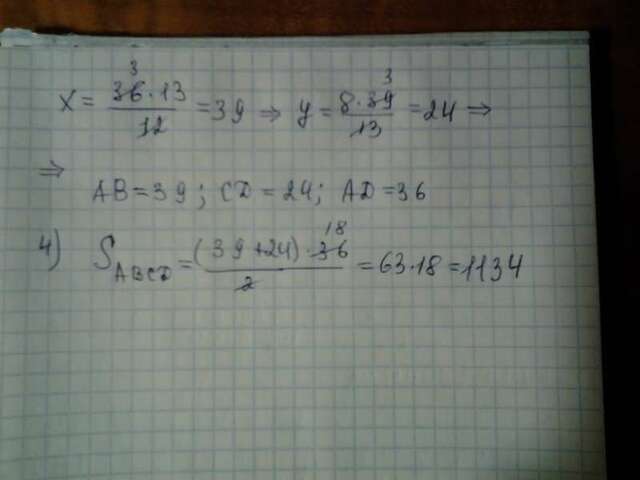 x = 36·13/12 = 39 ⇒ y = 8·39/13 = 24 ⇒
3 3
⇒ AB = 39; CD = 24; AD = 36
18
4) S ABCD = (39+24)·36/2 = 63·18 = 1134